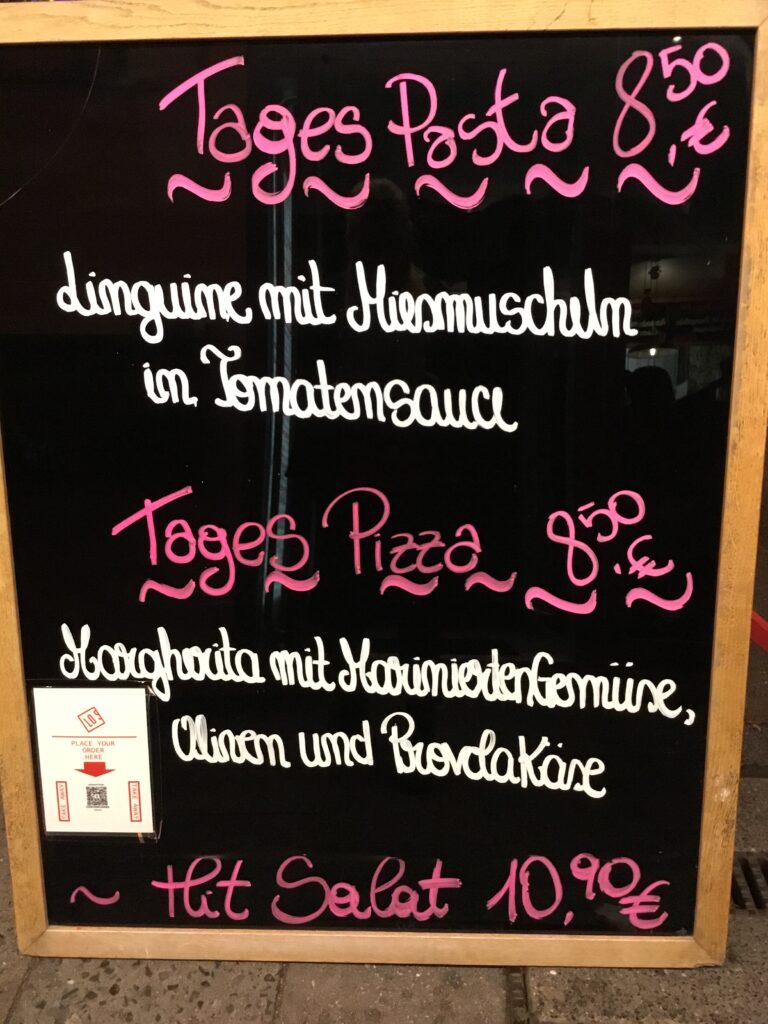 Tages Pasta 8,50 €
Linguine mit Miesmuscheln
in Tomatensauce
Tages Pizza 8,50 €
Margherita mit Marinierten Gemüse,
Oliven und Provola Käse
LO
PLACE YOUR
ORDER
HERE
TAKE AWAY
TAKE AWAY
~ Hit Salat 10,90 €